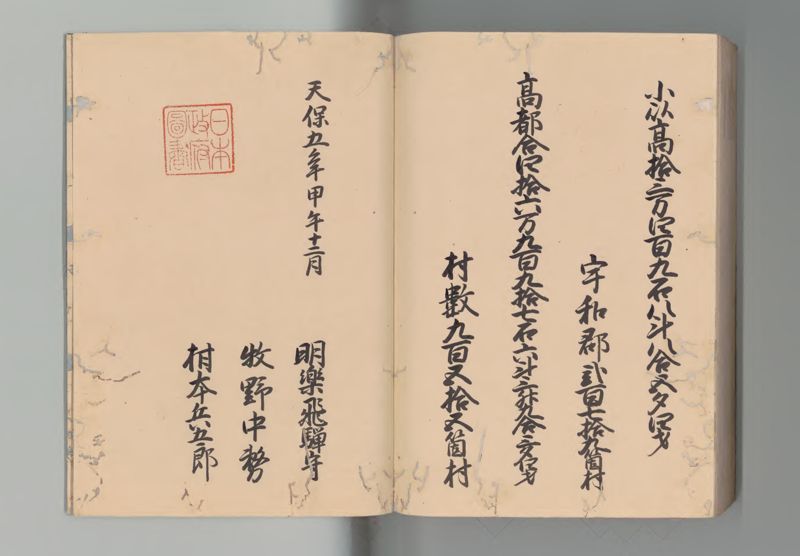 小以高拾三万四百九石八斗八合五夕四才
宇和郡弐百七拾九箇村
高都合四拾六万九百九拾七石六斗三升九合三夕四才
村數九百五拾五箇村
天保五年甲午十二月
明樂飛騨守
牧野中務
柑本兵五郎
日本
政府
圖書